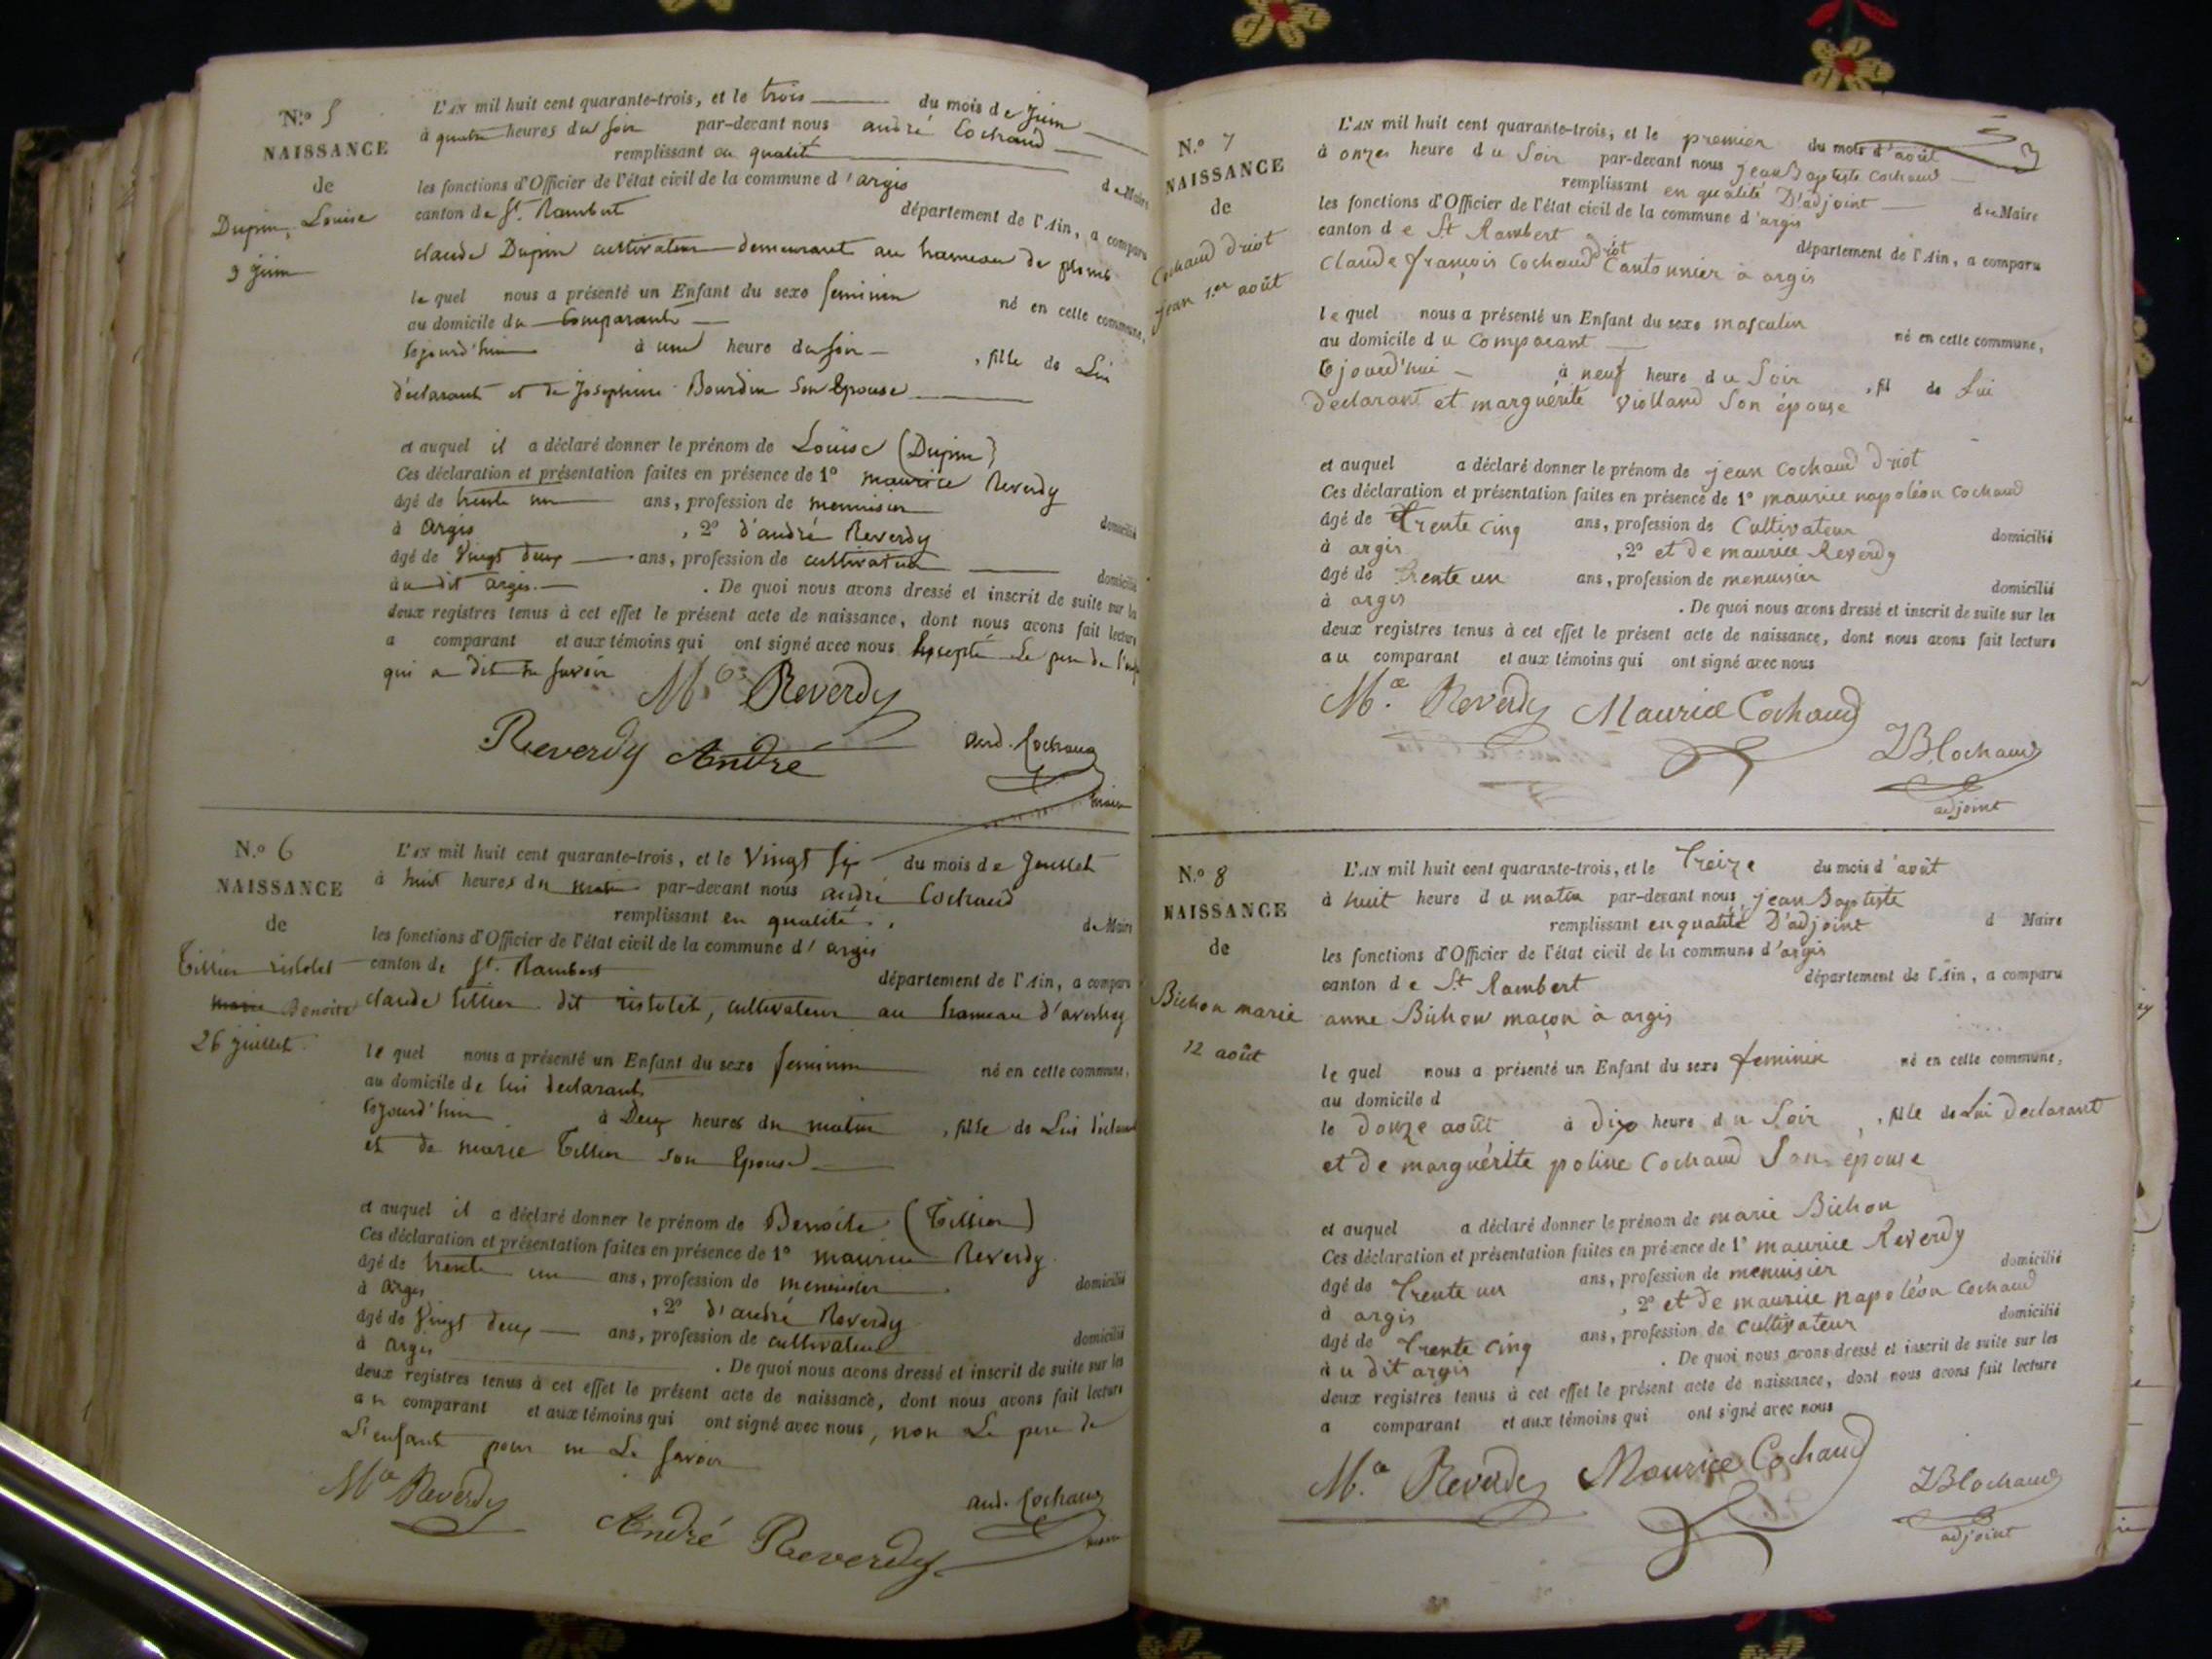 N.º 5
NAISSANCE
de
Dupin, Louise
3 juin
L'AN mil huit cent quarante-trois, et le trois du mois de juin
à quatre heures du soir par-devant nous andré Cochaud
remplissant en qualité
de Maire
les fonctions d'Officier de l'état civil de la commune d'argis
canton de St. Rambert département de l'Ain, a comparu
claude Dupin cultivateur demeurant au hameau de plomb
le quel nous a présenté un Enfant du sexe feminin né en cette commune,
au domicile du Comparant
cejourd'hui à une heure du soir, fille de Lui
déclarant et de Josephine Bourdin Son Epouse
et auquel il a déclaré donner le prénom de Louise (Dupin)
Ces déclaration et présentation faites en présence de 1º maurice Reverdy
âgé de trente un ans, profession de menuisier domicilié
à Argis, 2º d'andré Reverdy
âgé de Vingt deux ans, profession de cultivateur domicilié
au dit argis. De quoi nous avons dressé et inscrit de suite sur les
deux registres tenus à cet effet le présent acte de naissance, dont nous avons fait lecture
a comparant et aux témoins qui ont signé avec nous Le pere de
qui a dit ne savoir
Reverdy
Reverdy André
and. Cochaud
maire
N.º 6
NAISSANCE
de
Tillier ristolet
marie Benoite
26 juillet
L'AN mil huit cent quarante-trois, et le Vingt Six du mois de Juillet
à huit heures du matin par-devant nous andré Cochaud
remplissant en qualité de Maire
les fonctions d'Officier de l'état civil de la commune d'argis
canton de St. Rambert département de l'Ain, a comparu
claude tillier dit ristolet, cultivateur au hameau
le quel nous a présenté un Enfant du sexe feminin né en cette commune,
au domicile de lui declarant
cejourd'hui à Deux heures du matin, fille de Lui
et de marie Tillier son Epouse
et auquel il a déclaré donner le prénom de Benoite (Tillier)
Ces déclaration et présentation faites en présence de 1º maurice Reverdy
âgé de trente un ans, profession de menuisier domicilié
à Argis, 2º d'andré Reverdy
âgé de Vingt deux ans, profession de cultivateur domicilié
à Argis. De quoi nous avons dressé et inscrit de suite sur les
deux registres tenus à cet effet le présent acte de naissance, dont nous avons fait lecture
au comparant et aux témoins qui ont signé avec nous, non Le pere de
L'enfant pour ne Le savoir
Mce Reverdy
André Reverdy
and. Cochaud
maire
N.º 7
NAISSANCE
de
Cochaud driot
jean 1.er août
L'AN mil huit cent quarante-trois, et le premier du mois d'août
à onzes heure du Soir par-devant nous jean Baptiste Cochaud
remplissant en qualité D'adjoint du Maire
les fonctions d'Officier de l'état civil de la commune d'argis
canton de St Rambert département de l'Ain, a comparu
Claude françois Cochaud driot Cantonnier à argis
le quel nous a présenté un Enfant du sexe masculin
né en cette commune,
au domicile du Comparant
cejourd'hui à neuf heure du Soir, fil de Lui
Declarant et marguérite Violland Son épouse
et auquel a déclaré donner le prénom de jean Cochaud driot
Ces déclaration et présentation faites en présence de 1º maurice napoléon Cochaud
âgé de Trente cinq ans, profession de Cultivateur domicilié
à argis, 2º et de maurice Reverdy
âgé de Trente un ans, profession de menuisier domicilié
à argis. De quoi nous avons dressé et inscrit de suite sur les
deux registres tenus à cet effet le présent acte de naissance, dont nous avons fait lecture
au comparant et aux témoins qui ont signé avec nous
M.ce Reverdy Maurice Cochaud
JB Cochaud
adjoint
N.º 8
NAISSANCE
de
Bichon marie
12 août
L'AN mil huit cent quarante-trois, et le Treize du mois d'août
à huit heure du matin par-devant nous, jean Baptiste
remplissant en qualité D'adjoint d Maire
les fonctions d'Officier de l'état civil de la commune d'argis
canton de St Rambert département de l'Ain, a comparu
anne Bichon maçon à argis
le quel nous a présenté un Enfant du sexe feminin né en cette commune,
au domicile d
le douze août à dix heure du Soir, fille de Lui Declarant
et de marguérite poline Cochaud Son épouse
et auquel a déclaré donner le prénom de marie Bichon
Ces déclaration et présentation faites en présence de 1º maurice Reverdy
âgé de Trente un ans, profession de menuisier domicilié
à argis, 2º et de maurice napoléon Cochaud
âgé de Trente cinq ans, profession de cultivateur domicilié
à u dit argis. De quoi nous avons dressé et inscrit de suite sur les
deux registres tenus à cet effet le présent acte de naissance, dont nous avons fait lecture
a comparant et aux témoins qui ont signé avec nous
M.ce Reverdy Maurice Cochaud
JB Cochaud
adjoint